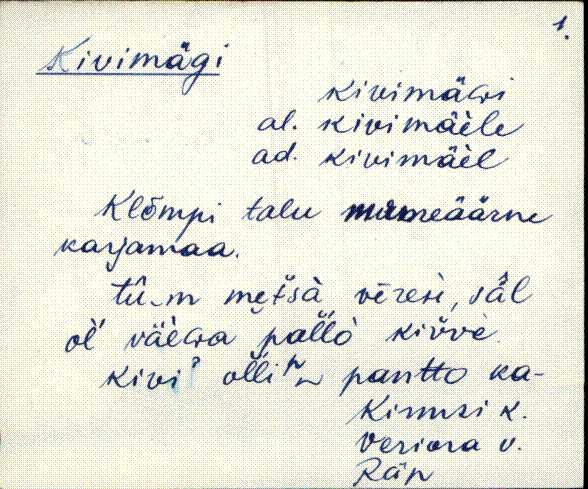 1.
Kivimägi
kivimäGi
al. kivimäèle
ad. kivimäèl
Klõmpi talu mereäärne
karjamaa.
metsà vēresì, säl
oĺ väèGa pallò kivvè.
kivi² olli pantto ka-
Kinnsi k.
Veriora v.
Räp